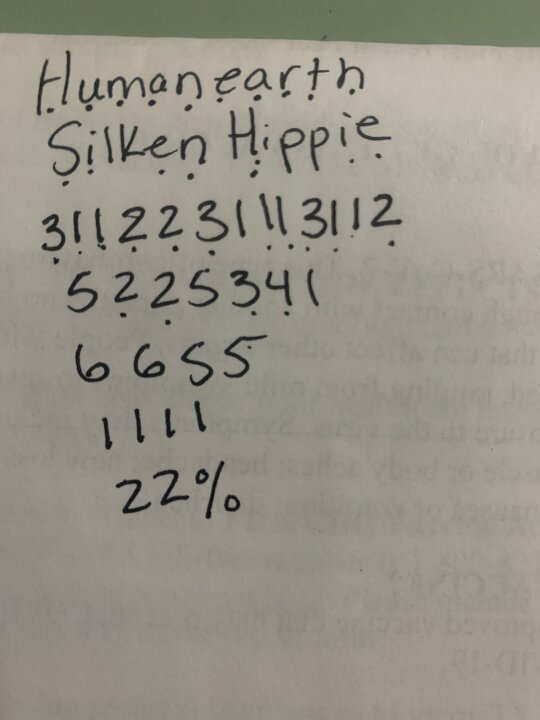 Human earth
Silken Hippie
3112231113112
5225341
6655
1111
22%